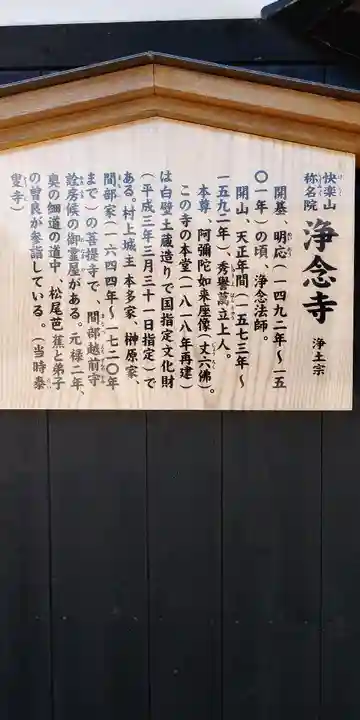 快楽山
称名院
浄念寺
浄土宗
開基、明応(一四九二年〜一五
〇一年)の頃、浄念法師。
開山、天正年間(一五七三年〜
一五九二年)、秀譽萬立上人。
本尊、阿彌陀如来座像(丈六佛)。
この寺の本堂(一八一八年再建)
は白壁土蔵造りで国指定文化財
(平成三年三月三十一日指定)で
ある。村上城主 本多家、榊原家、
間部家(一六四四年〜一七二〇年
まで)の菩提寺で、間部越前守
詮房候の御霊屋がある。元禄二年、
奥の細道の道中、松尾芭蕉と弟子
の曽良が参詣している。(当時泰
叟寺)